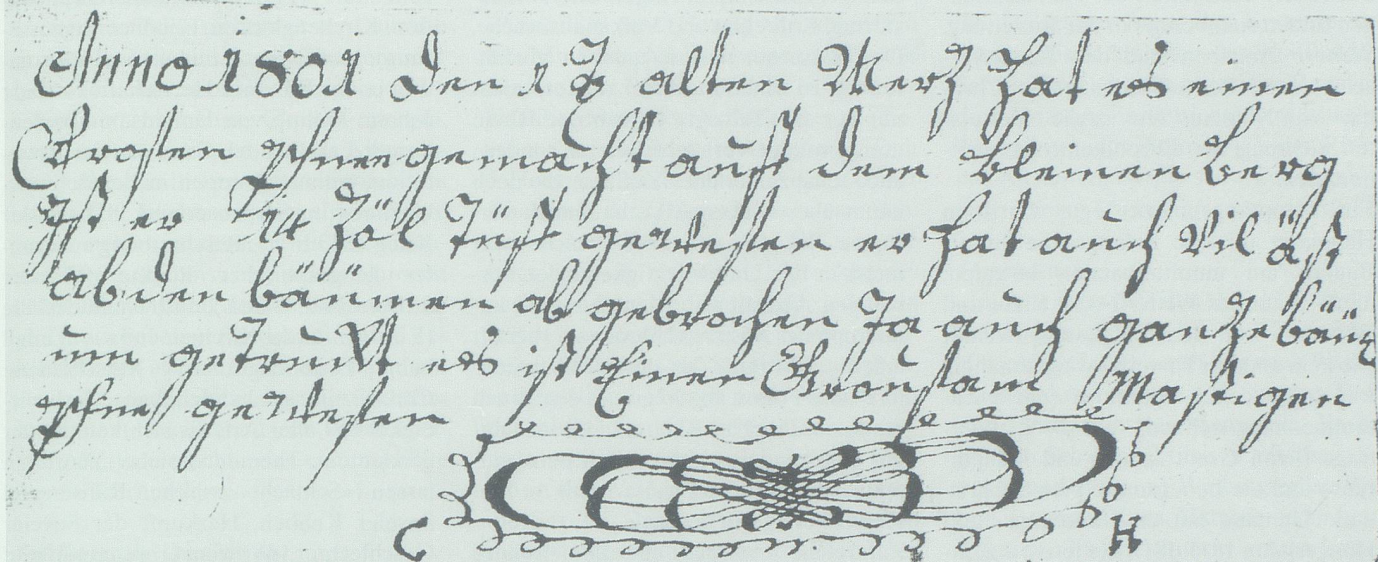 Anno 1801 den 18 alten Merz hat es einen
Grosen schnee gemacht auff dem kleinen berg
Ist er zöl tüff gewesen er hat auch vil äst
Ab den bäümen ab gebrochen Ja auch ganze bäüm
um getruckt es ist Einen Grousam Mastigen
schne gewesen